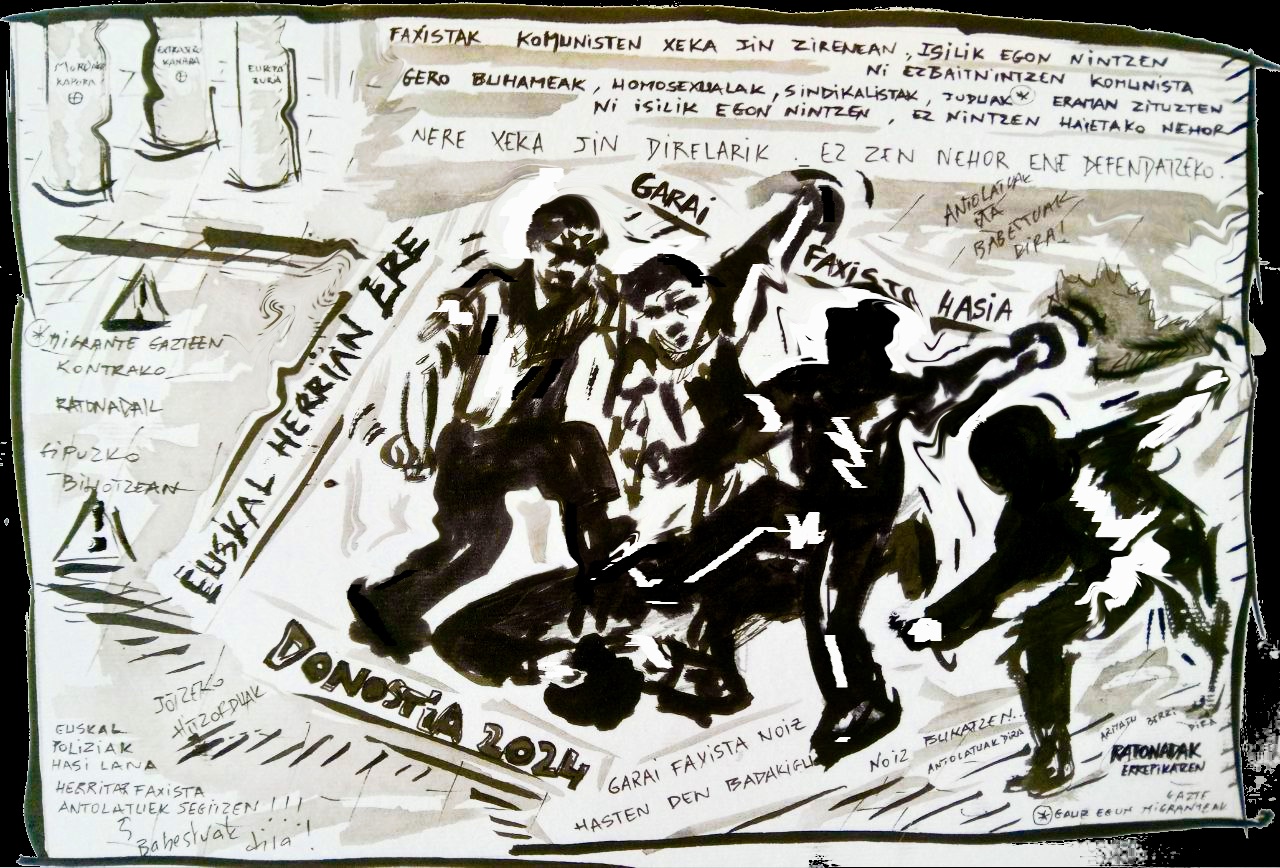 FAXISTAK KOMUNISTEN XEKA JIN ZIRENEAN, ISILIK EGON NINTZEN
NI EZBAITNINTZEN KOMUNISTA
GERO BUHAMEAK, HOMOSEXUALAK, SINDIKALISTAK, JUDUAK * ERAMAN ZITUZTEN
NI ISILIK EGON NINTZEN, EZ NINTZEN HAIETAKO NEHOR
NERE XEKA JIN DIRELARIK. EZ ZEN NEHOR ENE DEFENDATZEKO.
KANABA
GARAI
FAXISTA HASIA
ANTOLATUAK
ETA
BABESTUAK
DIRA!
EUSKAL HERRIAN ERE
* MIGRANTE GAZTEEN
KONTRAKO
RATONADAK
GIPUZKO
BIHOTZEAN
DONOSTIA 2024
HITZORDUAK
EUSKAL
POLIZIAK
HASI LANA
HERRITAR FAXISTA
ANTOLATUEK SEGITZEN !!!
Babestuak dira!
GARAI FAXISTA NOIZ
HASTEN DEN BADAKIGU
NOIZ BUKATZEN...
ANTOLATUAK DIRA
BERRI DIRA
RATONADAK
ERREPIKATZEN
* GAUR EGUN MIGRANTEAK
GAZTE